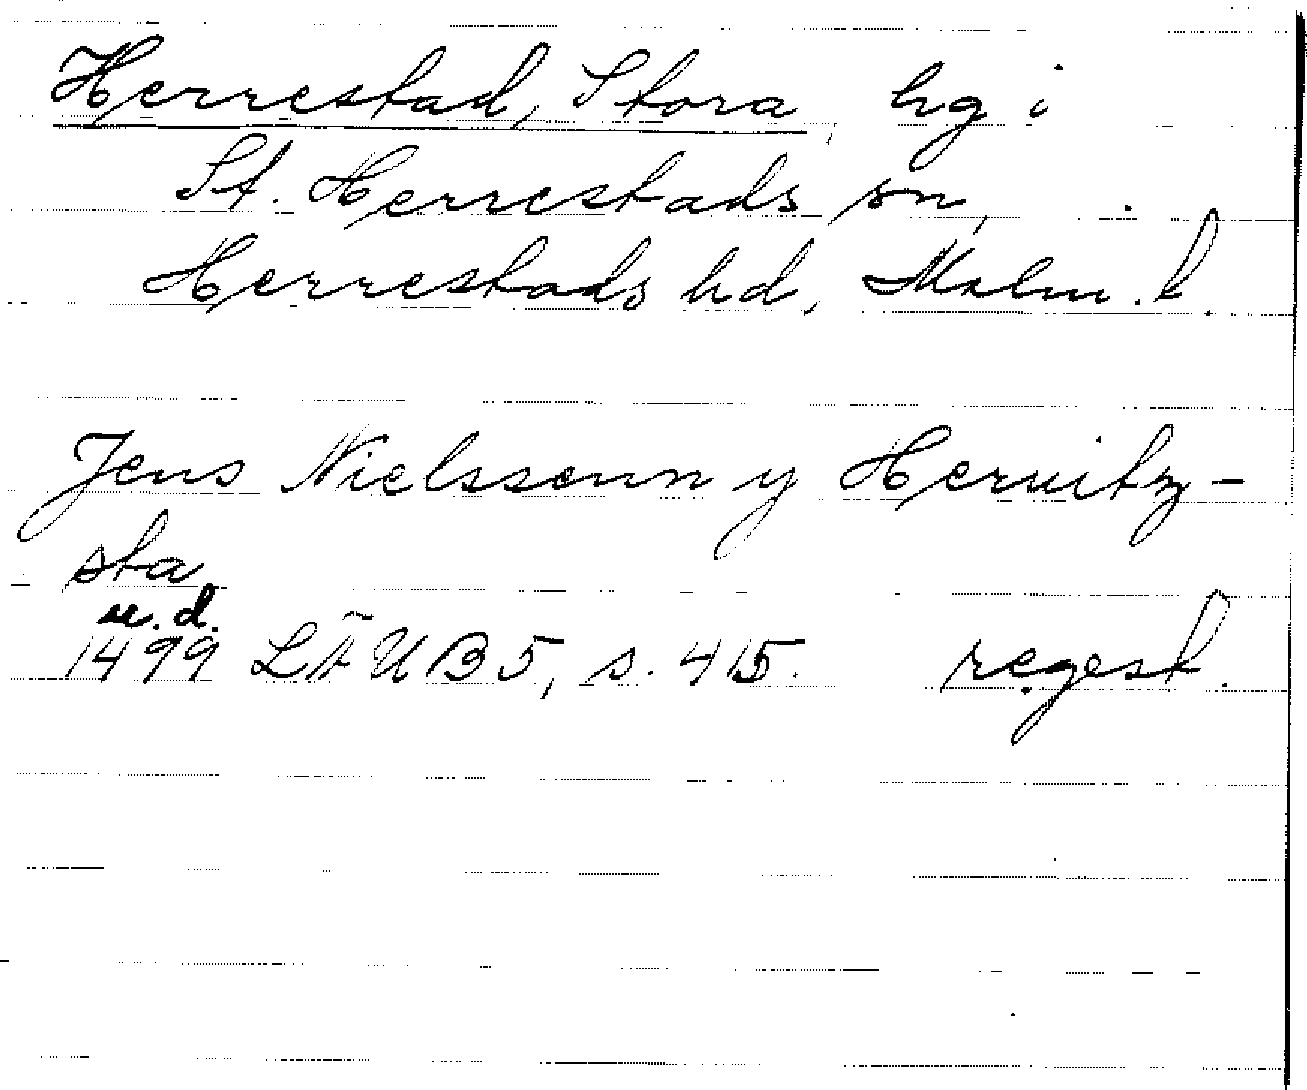 Herrestad, Stora, hg i
St. Herrestads sn,
Herrestads hd, Malm. l.
Jens Nielssenn y Heruitz-
sta
u. d.
1499 LÄUB 5, s. 415. regest.